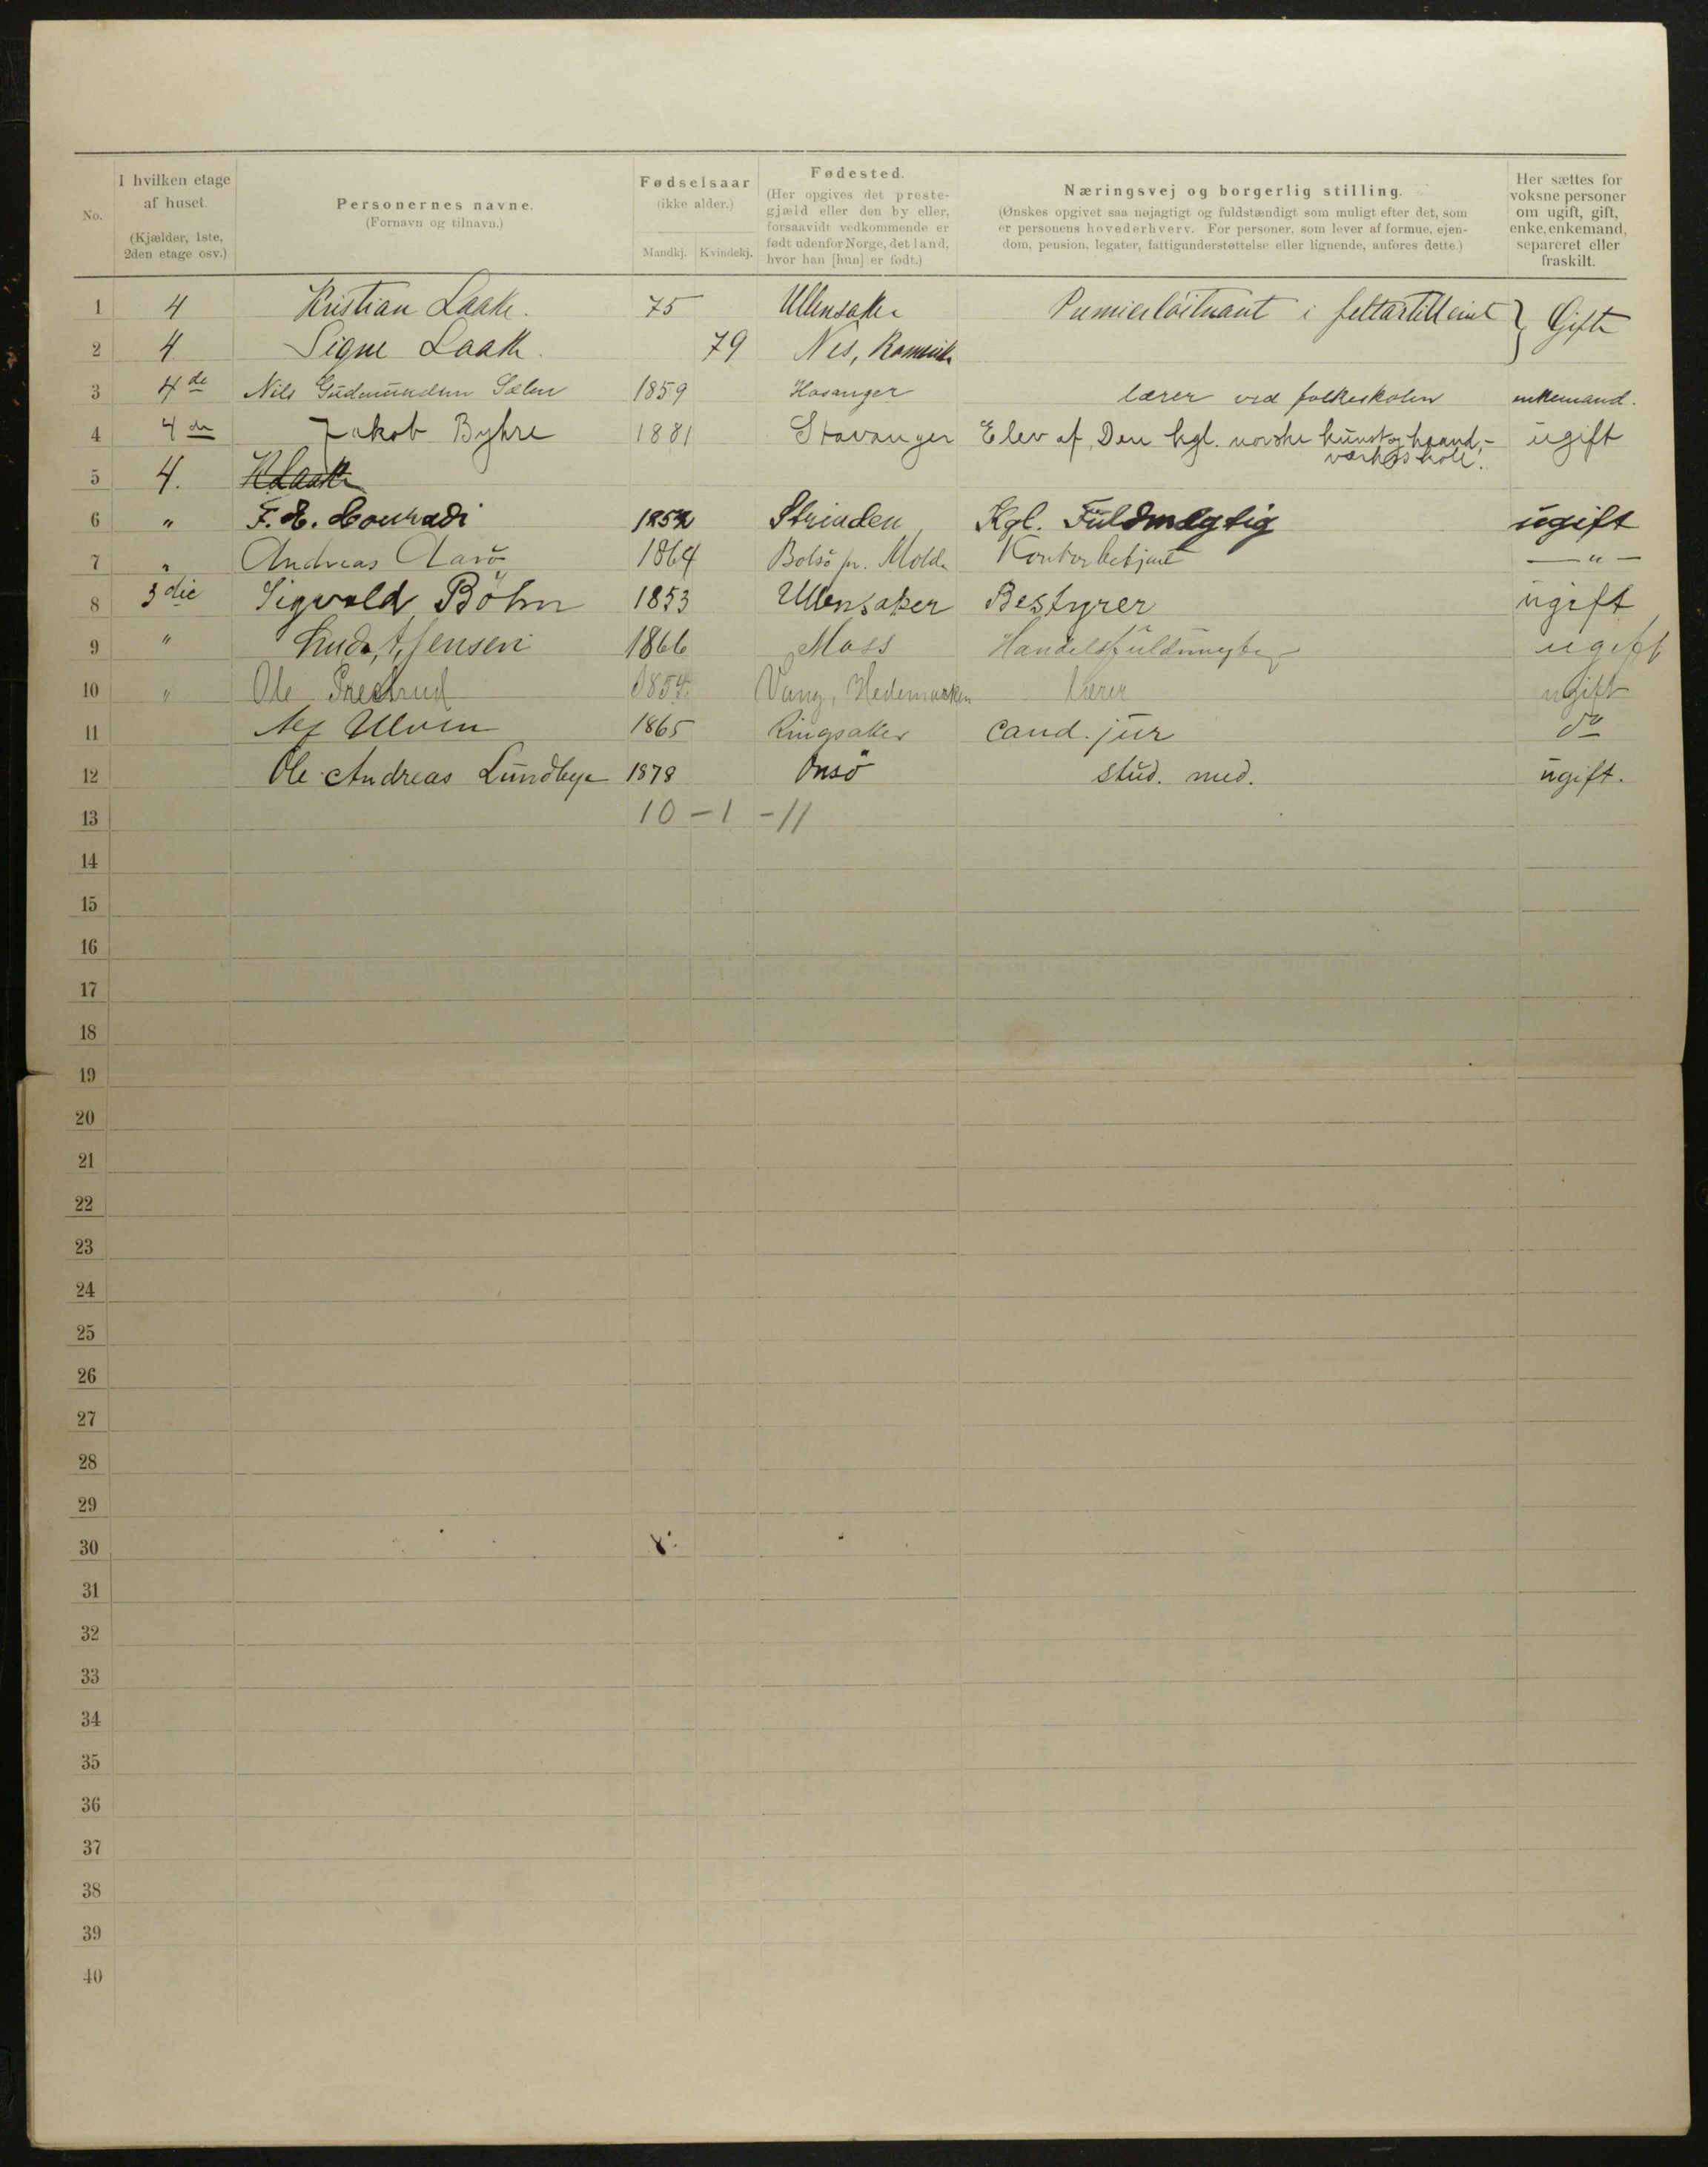 No.
I hvilken etage af huset.
(Kjælder, 1ste, 2den etage osv.)
Personernes navne.
(Fornavn og tilnavn.)
Fødselsaar
(ikke alder.)
Mandkj. Kvindekj.
Fødested.
(Her opgives det preste-
gjæld eller den by eller,
forsaavidt vedkommende er
født udenfor Norge, det land,
hvor han [hun] er født.)
Næringsvej og borgerlig stilling.
(Ønskes opgivet saa nøjagtigt og fuldstændigt som muligt efter det, som
er personens hovederhverv. For personer, som lever af formue, ejen-
dom, pension, legater, fattigunderstøttelse eller lignende, anføres dette.)
Her sættes for
voksne personer
om ugift, gift,
enke, enkemand,
separeret eller
fraskilt.
1 4 Kristian Laake. 75 Ullensaker Premierløitnant i feltartilleriet } Gifte
2 4 Signe Laake. 79 Nes, Romerike
3 4de Nils Gudmundsen Sælen 1859 Hosanger lærer ved folkeskolen enkemand.
4 4de Jakob Byhre 1881 Stavanger Elev af „Den kgl. norske kunst og haand-
værksskole". ugift
5 4. K Laake
6 " F. E. Conradi Strinden Kgl. Fuldmægtig ugift
7 " Andreas Aarö 1864 Bolsö pr. Molde Kontorbetjent — " —
8 3die Sigvald Böhn 1853 Ullensaker Bestyrer ugift
9 " Jensen 1866 Moss Handelsfuldmægtig ugift
10 " Ole Prestrud Vang, Hedemarken lærer ugift
11 Ulven 1865 Ringsaker cand. jur do
12 Ole Andreas Lundbye 1878 Onsö stud. med. ugift.
13 10 - 1 - 11
14
15
16
17
18
19
20
21
22
23
24
25
26
27
28
29
30
31
32
33
34
35
36
37
38
39
40